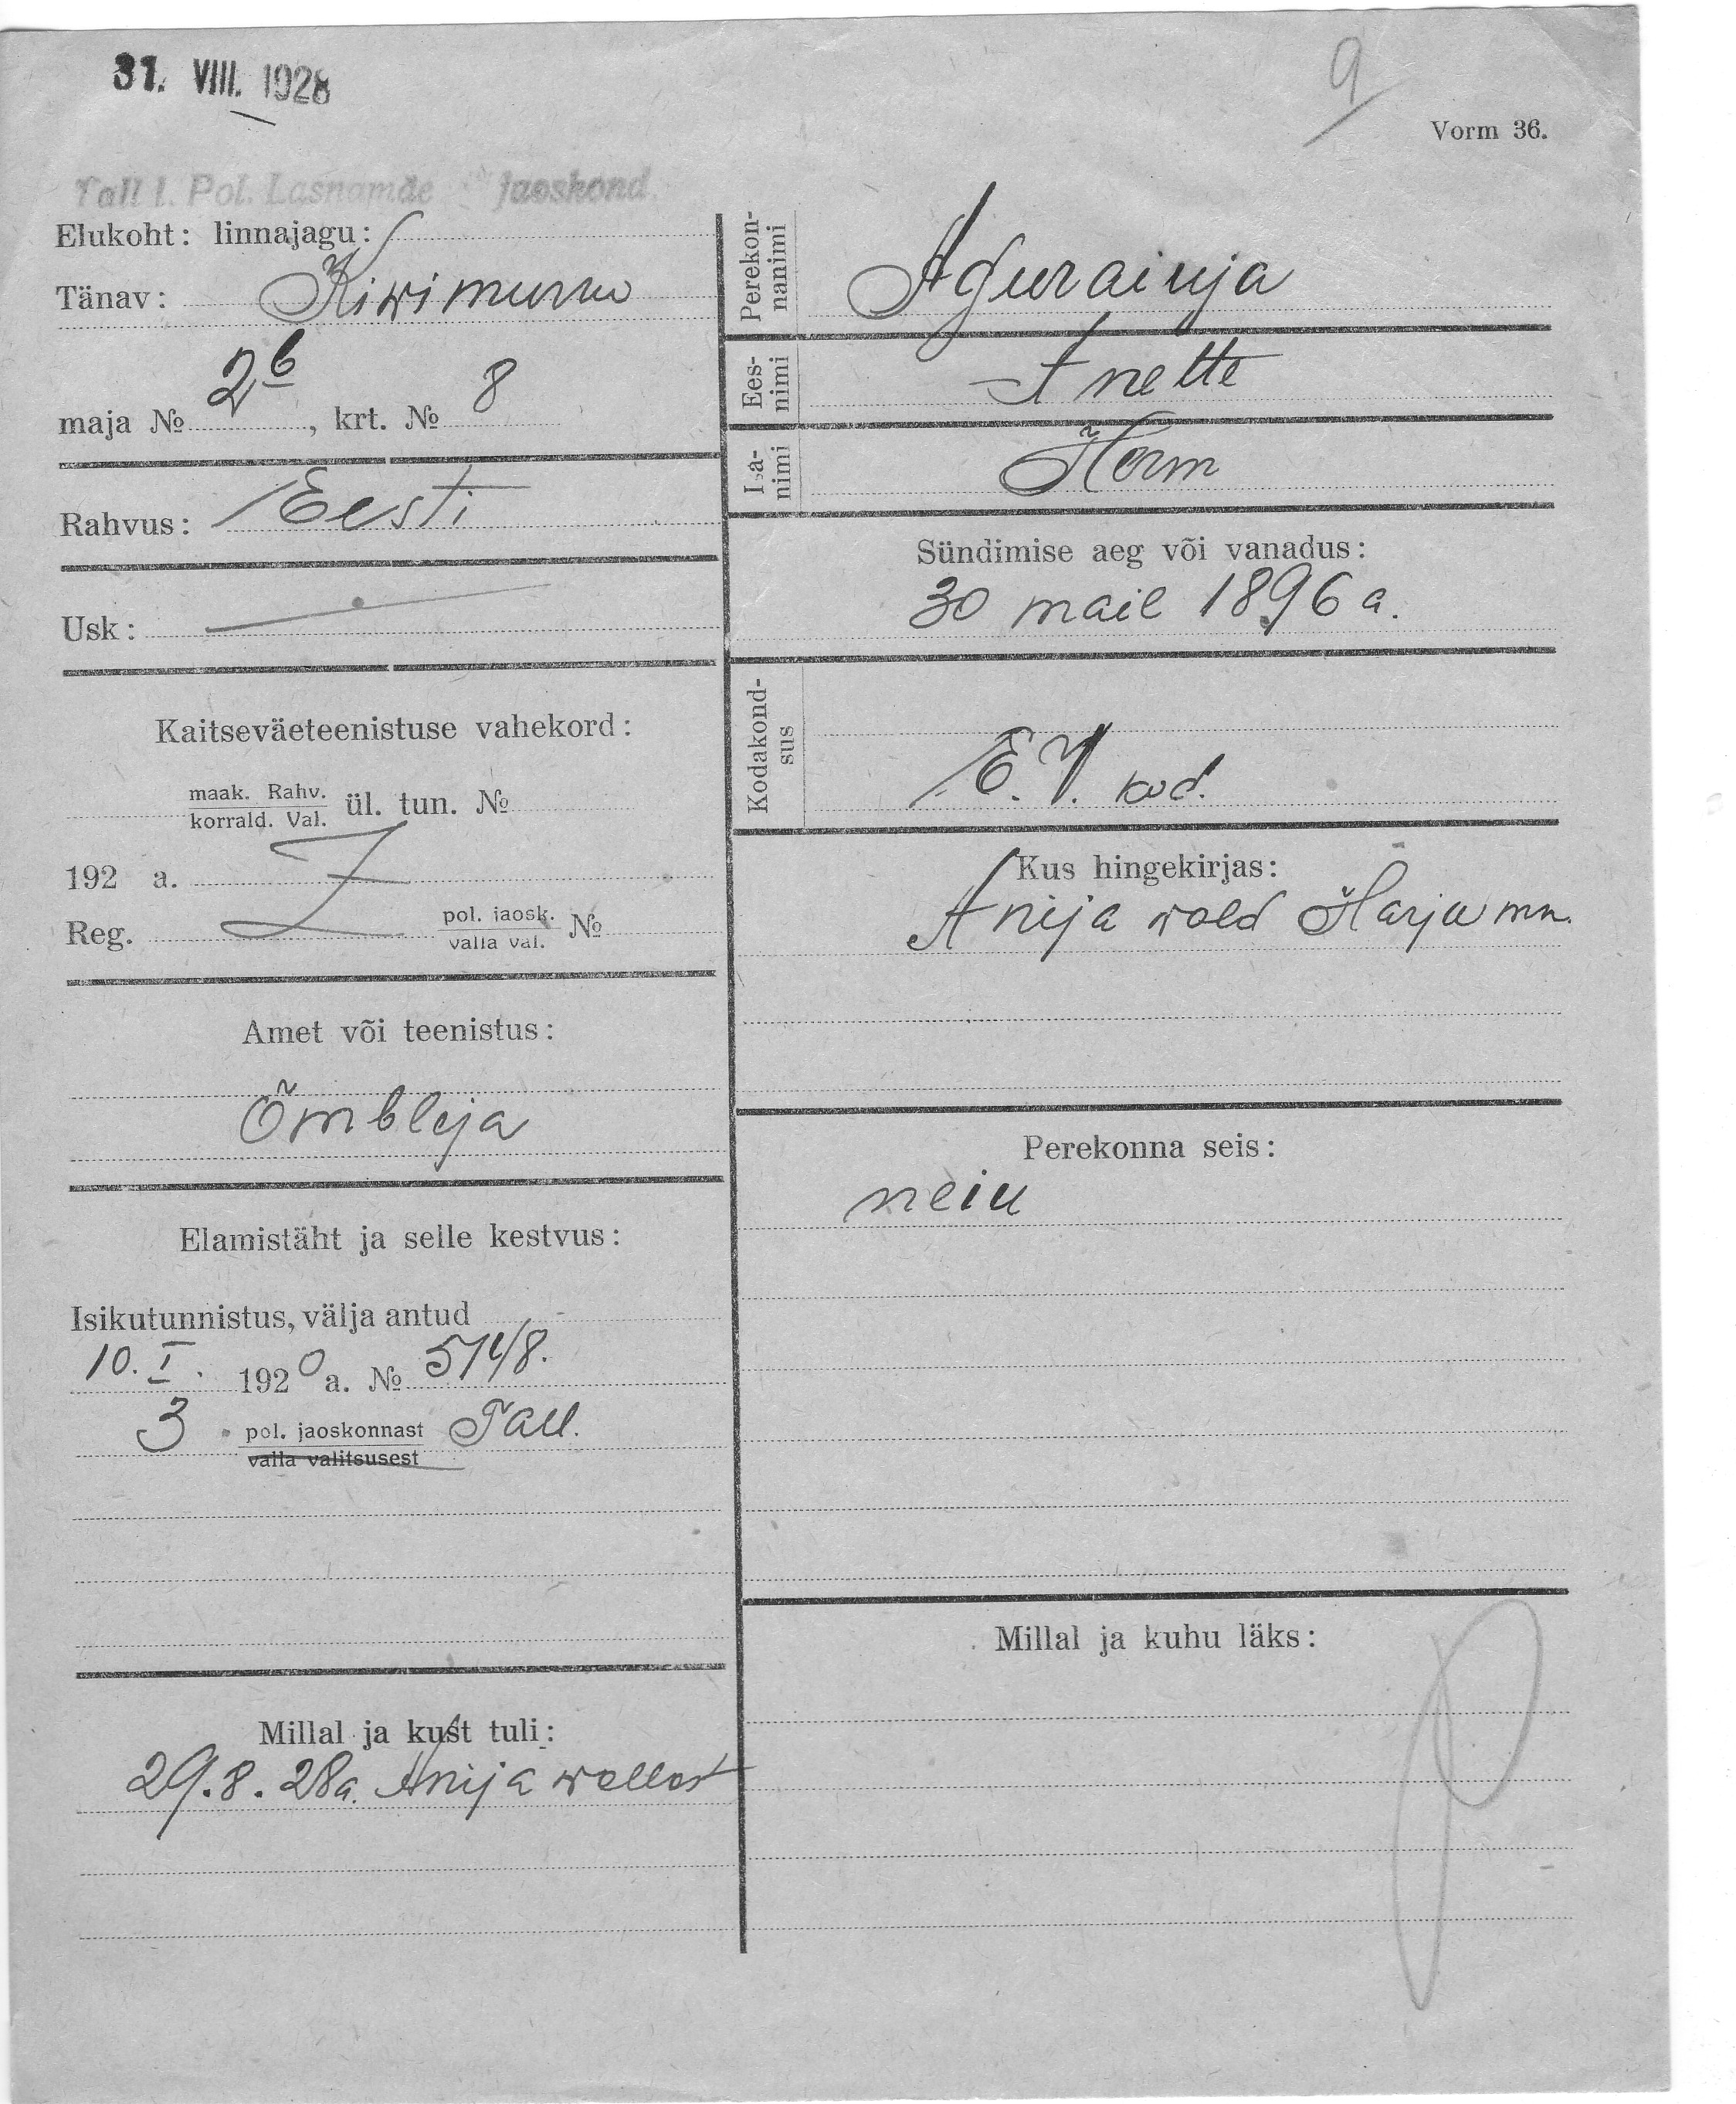 31. VIII. 1928
9
Vorm 36.
Tall l. Pol. Lasnamäe jaoskond.
Elukoht: linnajagu:
Tänav: Kiwimurru
maja № 2b, krt. № 8
Rahvus: Eesti
Usk: —
Kaitseväeteenistuse vahekord:
maak. Rahv.
korrald. Val. ül. tun. №
192 a.
Reg. pol. jaosk. №
valla val.
Amet või teenistus:
Õmbleja
Elamistäht ja selle kestvus:
Isikutunnistus, välja antud
10. I. 1920 a. № 5148.
3 pol. jaoskonnast Tall.
valla valitsusest
Millal ja kust tuli:
29.8.28a. Anija wallast
Perekon-
nanimi
Aguraiuja
Ees-
nimi
Anette
Isa-
nimi
Herm
Sündimise aeg või vanadus:
30 mail 1896 a.
Kodakond-
sus
E.V. kod.
Kus hingekirjas:
Anija wald Harju mn.
Perekonna seis:
neiu
Millal ja kuhu läks: